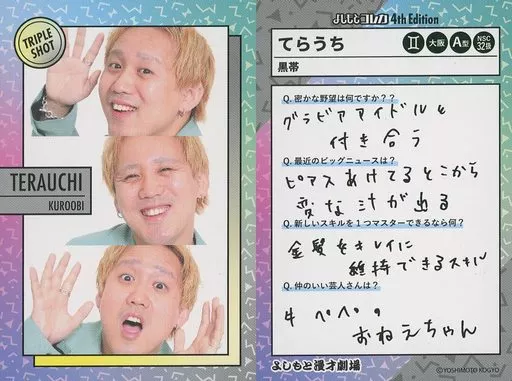 TRIPLE
SHOT
TERAUCHI
KUROOBI
よしもとコレカ 4th Edition
てらうち
黒帯
♊ 大阪 A型 NSC 32期
Q. 密かな野望は何ですか??
グラビアアイドルと
付き合う
Q. 最近のビッグニュースは?
ピアスあけてるとこから
変な汁が出る
Q. 新しいスキルを1つマスターできるなら何?
金髪をキレイに
維持できるスキル
Q. 仲のいい芸人さんは?
ペペの
おねえちゃん
よしもと漫才劇場
©YOSHIMOTO KOGYO